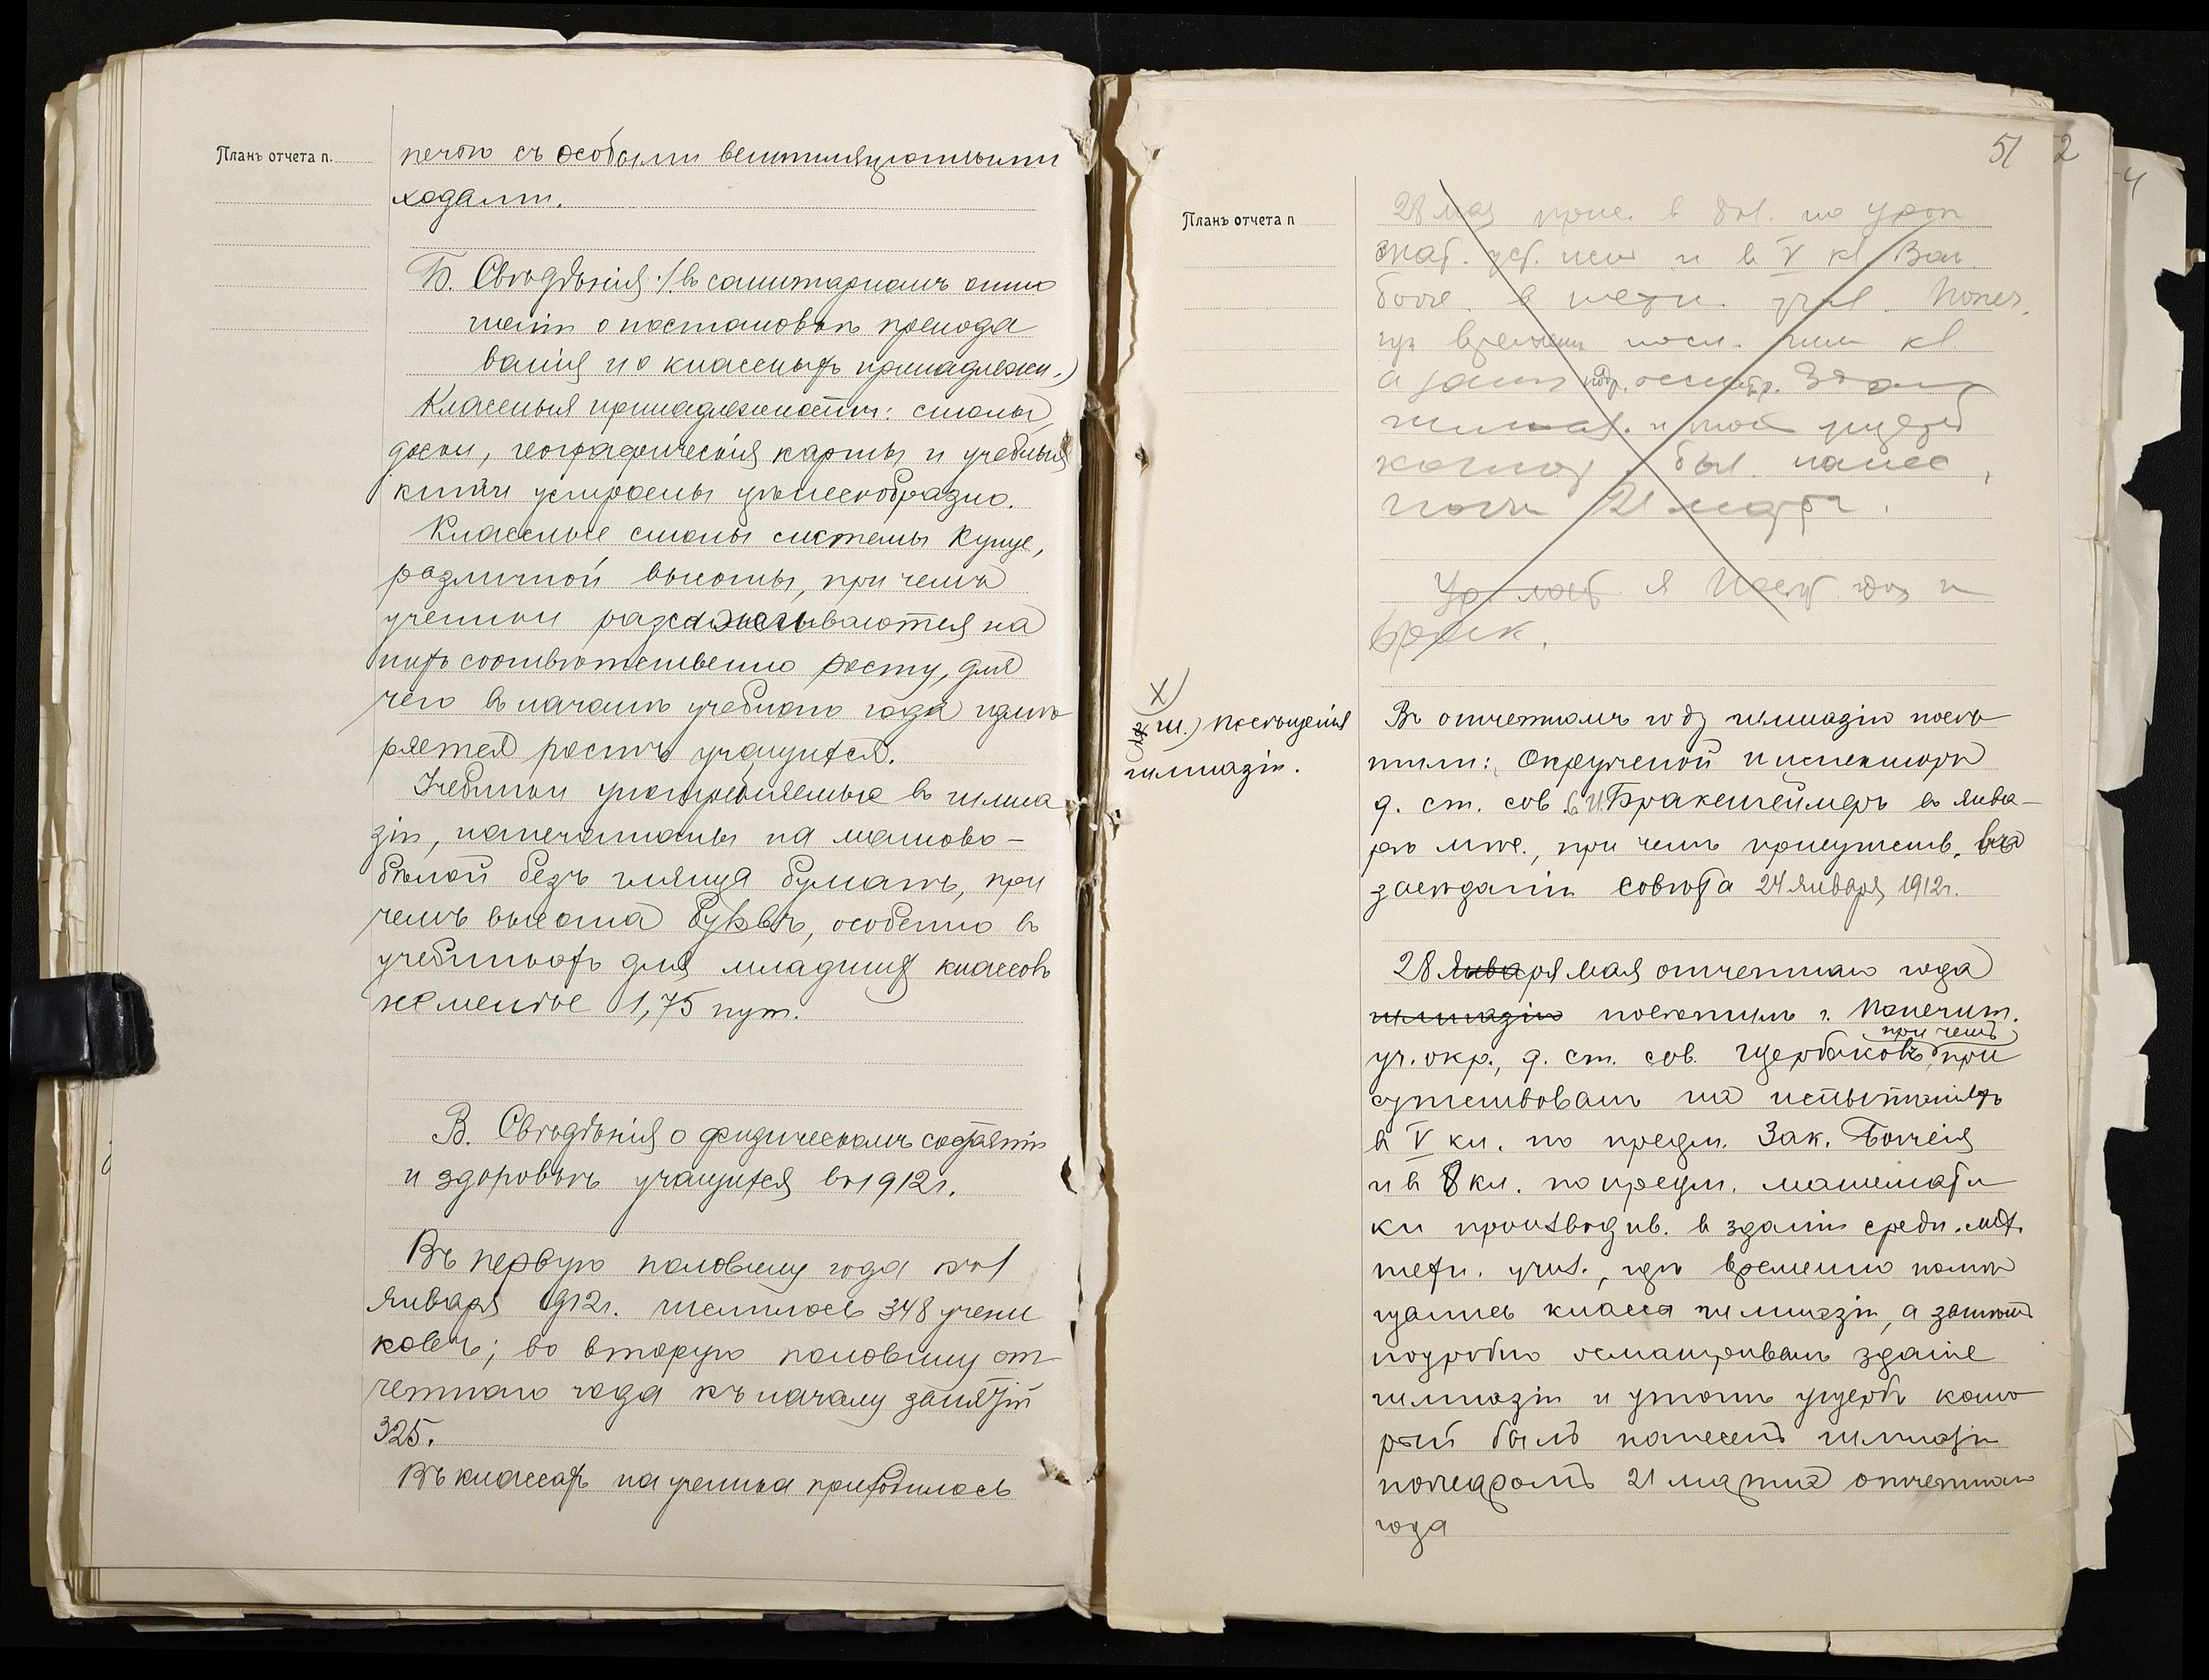 Планъ отчета п.
печою съ особыми вентиляціонными
ходами.
Б. Свѣдѣнія /въ санитарномъ отно
шеніи о постановкѣ препода
ванія и о классныхъ принадлежн.)
Классныя принадлежности: столы,
доски, географическія карты и учебныя
книги устроены цѣлесообразно.
Классные столы системы Кунце,
различной высоты, при чемъ
ученики разсаживаются на
нихъ соотвѣтственно росту, для
чего въ началѣ учебнаго года измѣ
ряется ростъ учащихся.
Учебники употребляемые въ гимна
зіи, напечатаны на матово-
бѣлой безъ глянца бумагѣ, при
чемъ высота буквъ, особенно въ
учебникахъ для младшихъ классовъ
не менѣе 1,75 пун.
В. Свѣдѣнія о физическомъ состояніи
и здоровьѣ учащихся въ 1912г.
Въ первую половину года къ 1
Января 1912г. числилось 348 учени
ковъ; во вторую половину от
четнаго года къ началу занятій
325.
Въ классахъ на ученика приходилось
51 2
Планъ отчета п
28 мая в по
и в V кл
времени посл. кл.
а осмотр.
был. нанес
21 март
я и
X)
III.) Посѣщенія
гимназіи.
Въ отчетномъ году гимназію посѣ
тили: Окружной Инспекторъ
д. ст. сов. В. И. Бракенгеймеръ въ янва-
рѣ мѣс., при чемъ присутств. въ
засѣданіи Совѣта 24 января 1912г.
28 Января мая отчетнаго года
гимназію посѣтилъ г. Попечит.
при чемъ
уч. окр., д. ст. сов. Щербаковъ, при
сутствовалъ на испытаніяхъ
в V кл. по предм. Зак. Божія
и в 8 кл. по предм. математи
ки производив. в зданіи средн. мех.
техн. учил., гдѣ временно помѣ
щались класса гимназіи, а затѣмъ
подробно осматривалъ зданіе
гимназіи и ущербъ кото
рый былъ нанесенъ гимназіи
пожаромъ 21 марта отчетнаго
года